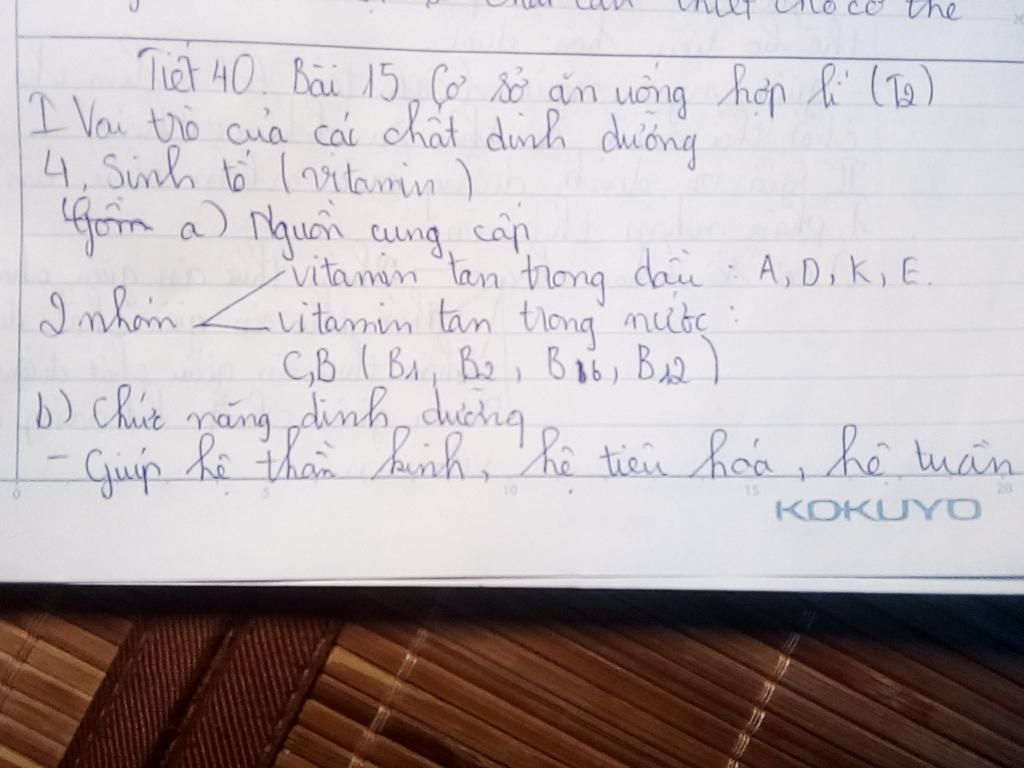 chất cần thiết cho cơ thể
Tiết 40 Bài 15 Cơ sở ăn uống hợp lí (T2)
I Vai trò của cái chất dinh dưỡng
4, Sinh tố (vitamin)
Gồm a) Nguồn cung cấp
vitamin tan trong dầu : A, D, K, E.
2 nhóm vitamin tan trong nước :
C, B ( B1, B2, B6, B12 )
b) Chức năng dinh dưỡng
- Giúp hệ thần kinh, hệ tiêu hóa, hệ tuần
0 5 10 15 20
KOKUYO